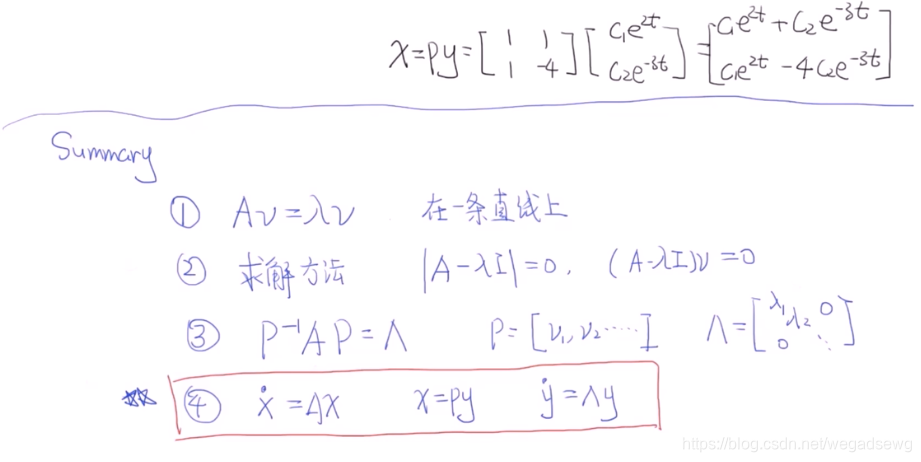 x=py=[1 1; 1 -4][c₁e^{2t}; c₂e^{-3t}]=[c₁e^{2t}+c₂e^{-3t}; c₁e^{2t}-4c₂e^{-3t}]
Summary
① Aν=λν 在一条直线上
② 求解方法 |A-λI|=0, (A-λI)ν=0
③ P⁻¹AP=Λ P=[ν₁,ν₂·····] Λ=[λ₁ λ₂ 0; 0 ⋱]
④ ẋ=Ax x=py ẏ=Λy
https://blog.csdn.net/wegadsewg